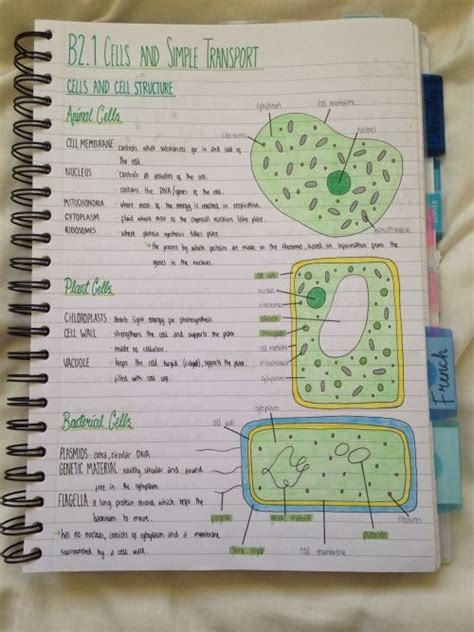 B2.1 CELLS AND SIMPLE TRANSPORT
CELLS AND CELL STRUCTURE
Animal Cells
CELL MEMBRANE controls what substances go in and out of
the cell.
NUCLEUS controls all activities of the cell.
contains the DNA/genes of the cell.
MITOCHONDRIA where most of the energy is released in respiration.
CYTOPLASM fluid where most of the chemical reactions take place.
RIBOSOMES where protein synthesis takes place.
the process by which proteins are made on the ribosomes, based on information from the
genes in the nucleus.
cytoplasm
cell membrane
ribosomes
nucleus
mitochondria
Plant Cells
CHLOROPLASTS absorb light energy for photosynthesis
CELL WALL strengthens the cell and supports the plant.
made of cellulose.
VACUOLE keeps the cell turgid (rigid), supports the plant.
filled with cell sap.
cell wall
nucleus
ribosomes
vacuole
chloroplasts
cell membrane
mitochondria
cytoplasm
Bacterial Cells
PLASMIDS extra, circular DNA
GENETIC MATERIAL usually circular and found
free in the cytoplasm.
FLAGELLA a long protein strand which helps the
bacterium to move.
has no nucleus, consists of cytoplasm and a membrane
surrounded by a cell wall.
cytoplasm
cell wall
flagella
genetic material
plasmids
ribosomes
slime capsule
cell membrane
French